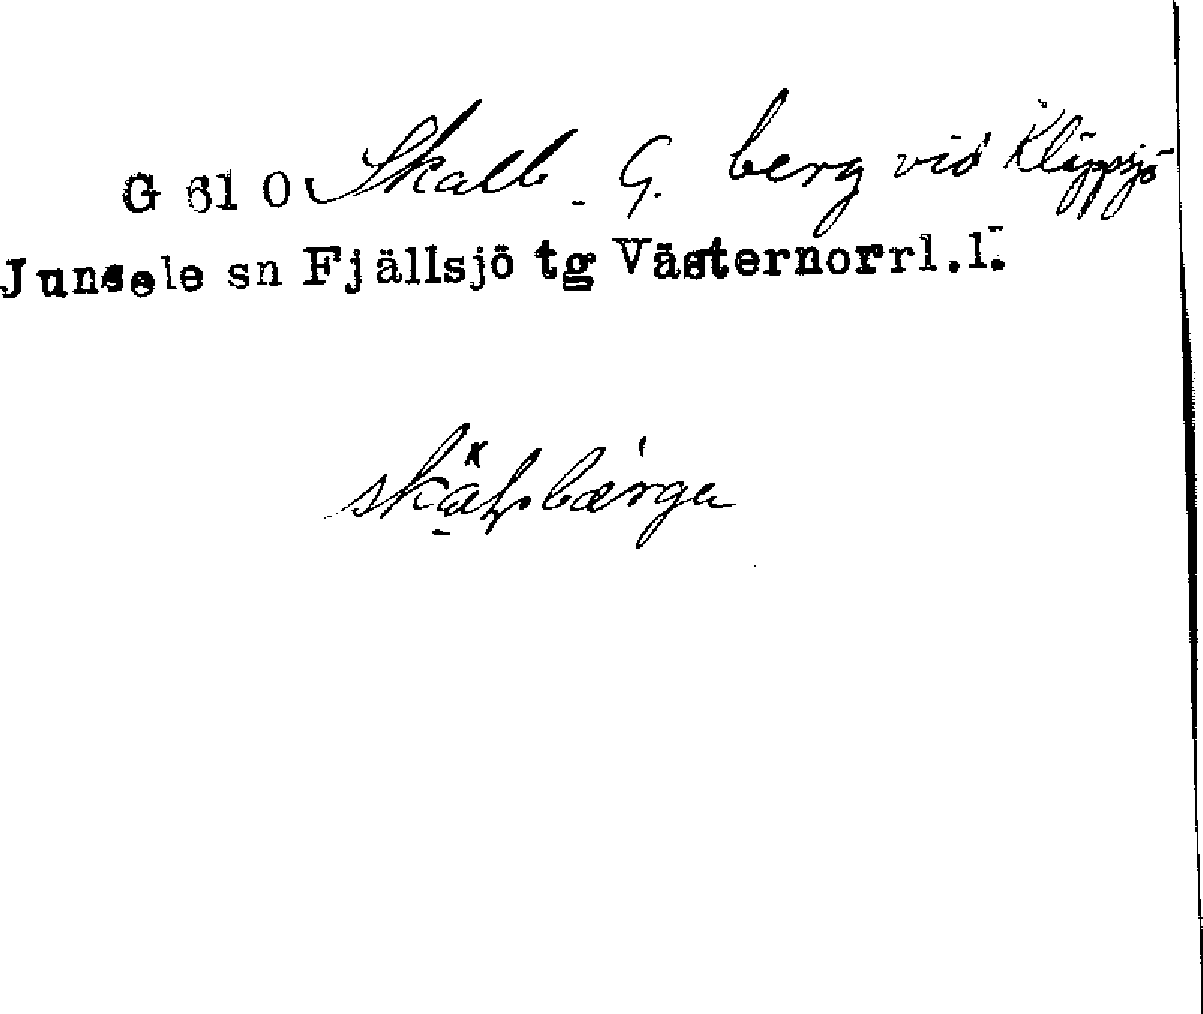 G 61 0 Skallb. G. berg vid Kläppsjö
Junsele sn Fjällsjö tg Västernorrl.l.